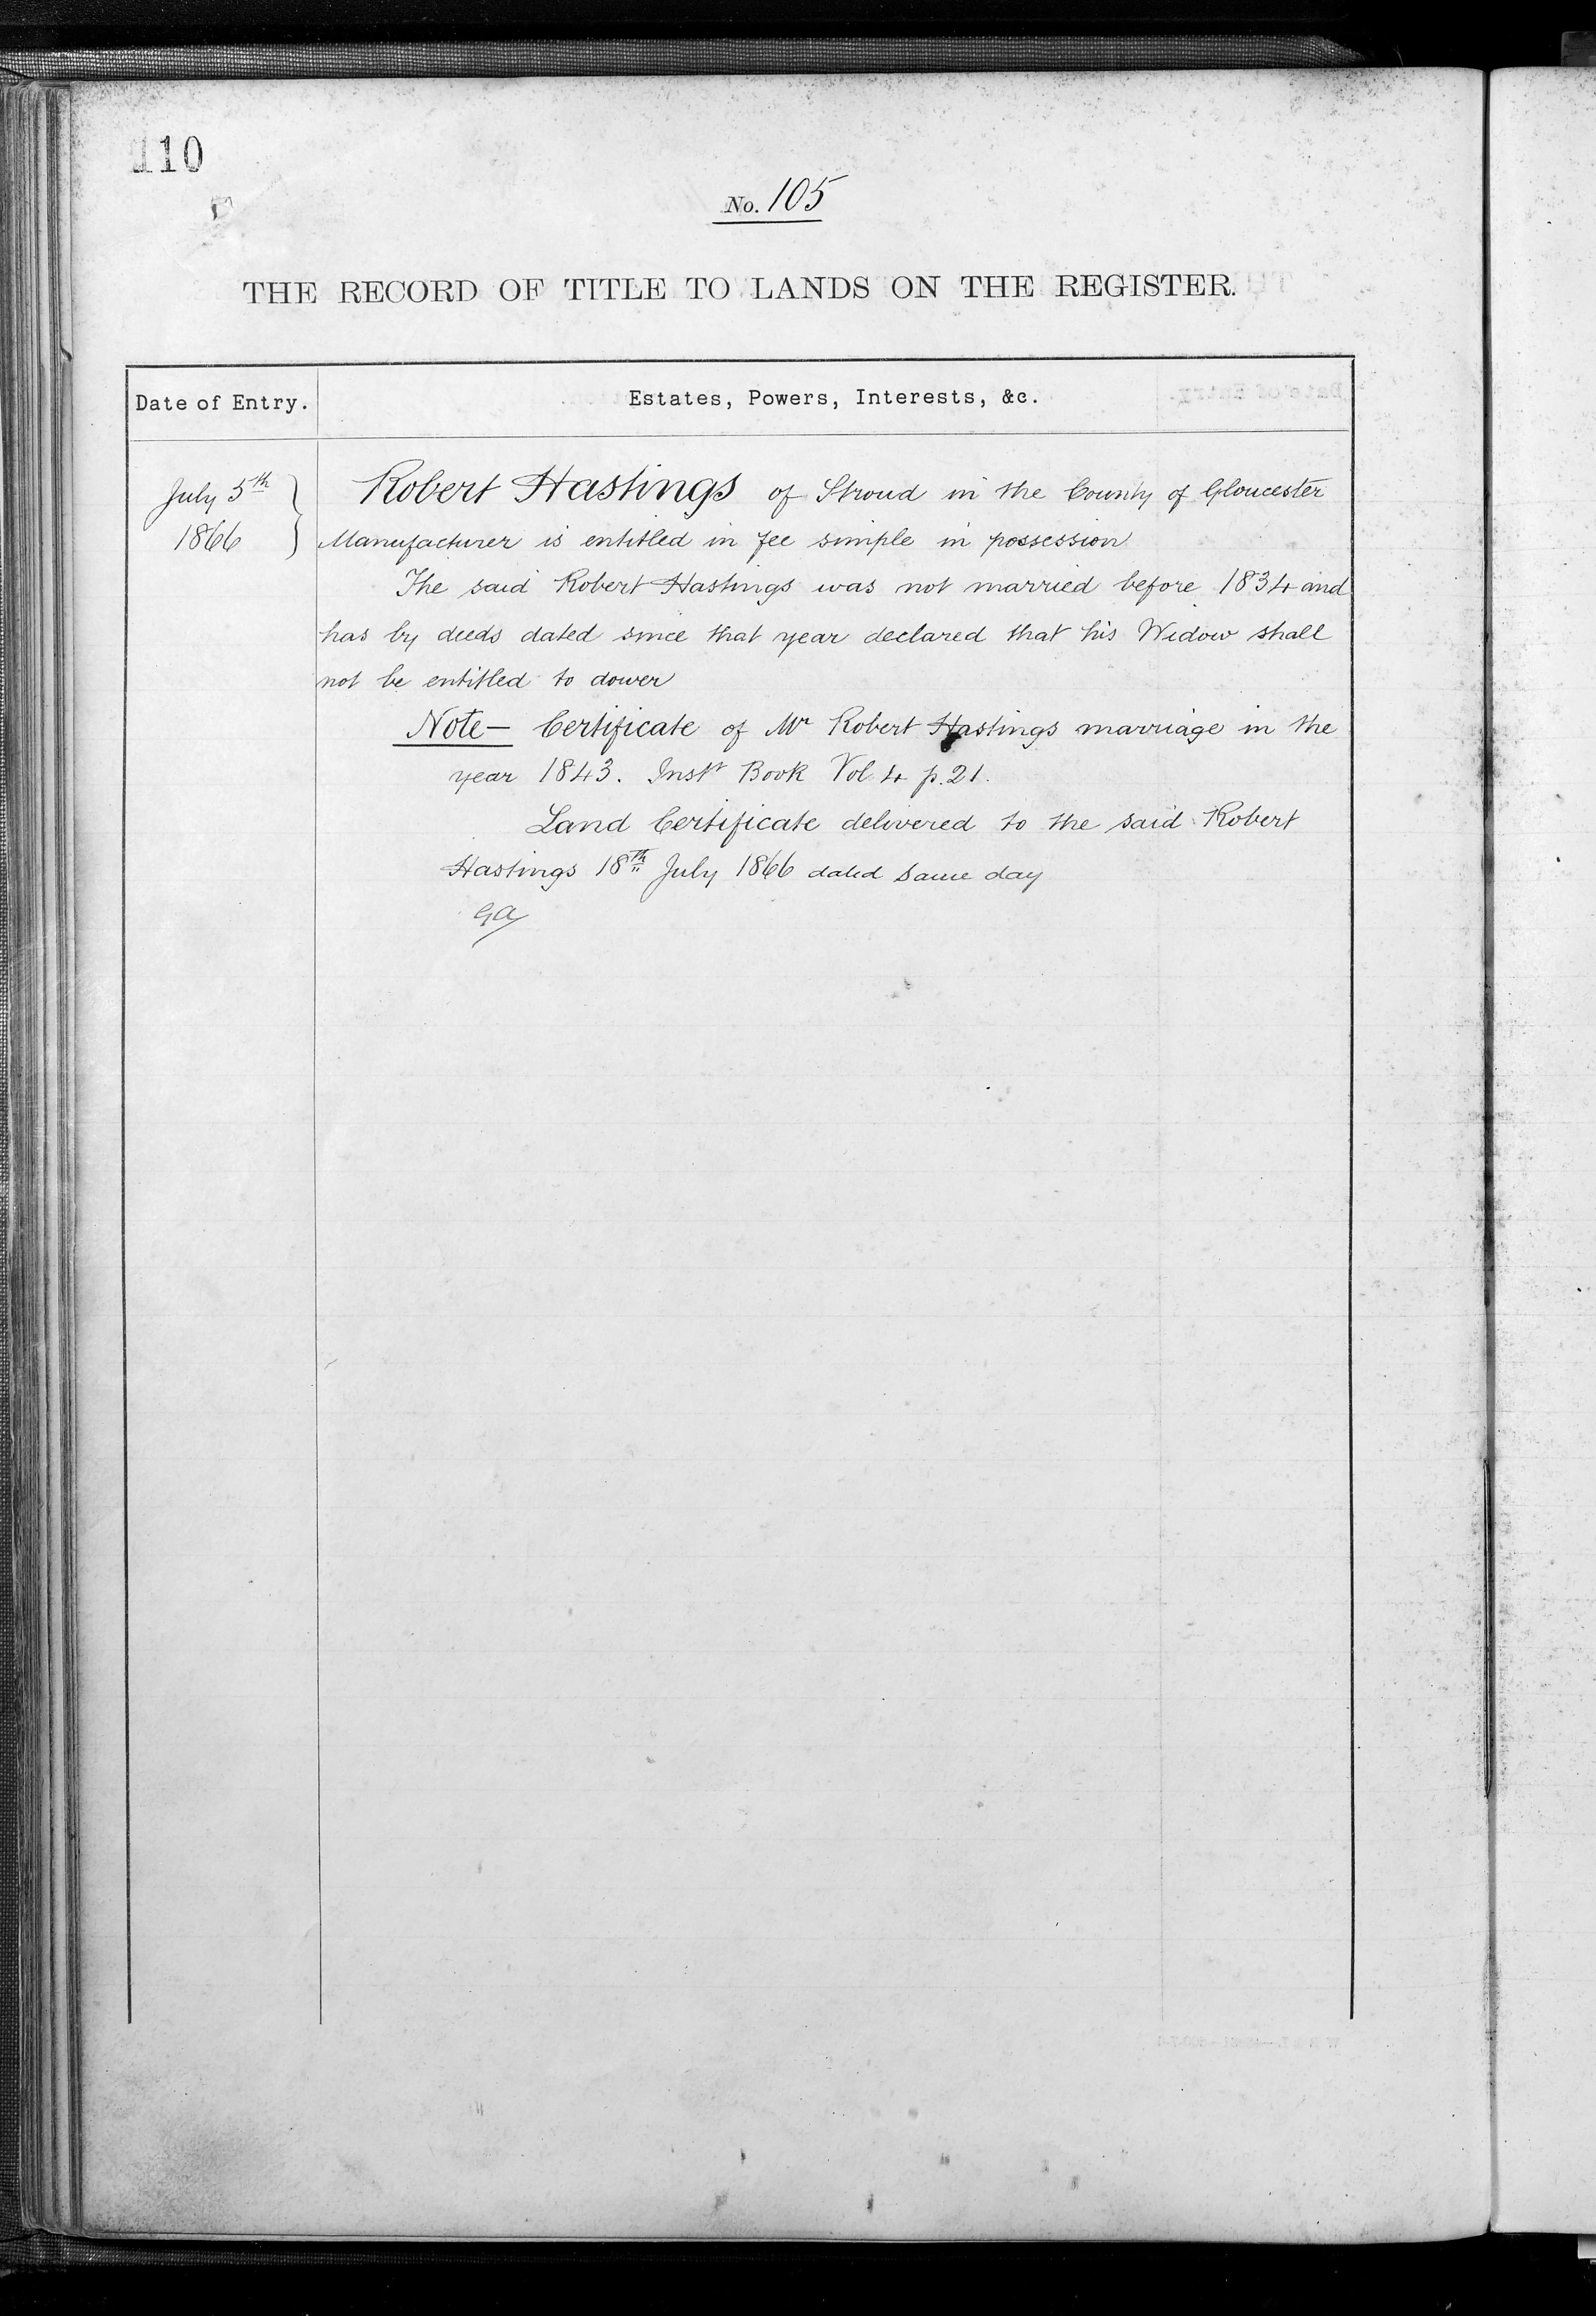 110
No. 105
THE RECORD OF TITLE TO LANDS ON THE REGISTER.
Date of Entry.
Estates, Powers, Interests, &c.
July 5th
1866
Robert Hastings of Stroud in the County of Gloucester
Manufacturer is entitled in fee simple in possession
The said Robert Hastings was not married before 1834 and
has by deeds dated since that year declared that his Widow shall
not be entitled to dower
Note— Certificate of Mr Robert Hastings marriage in the
year 1843. Instt Book Vol. 4 p. 21.
Land Certificate delivered to the said Robert
Hastings 18th July 1866 dated same day
GA